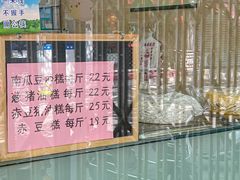 不握手
南瓜豆沙糕每斤22元
葱猪油糕每斤22元
赤豆猪油糕每斤25元
赤豆糕每斤18元